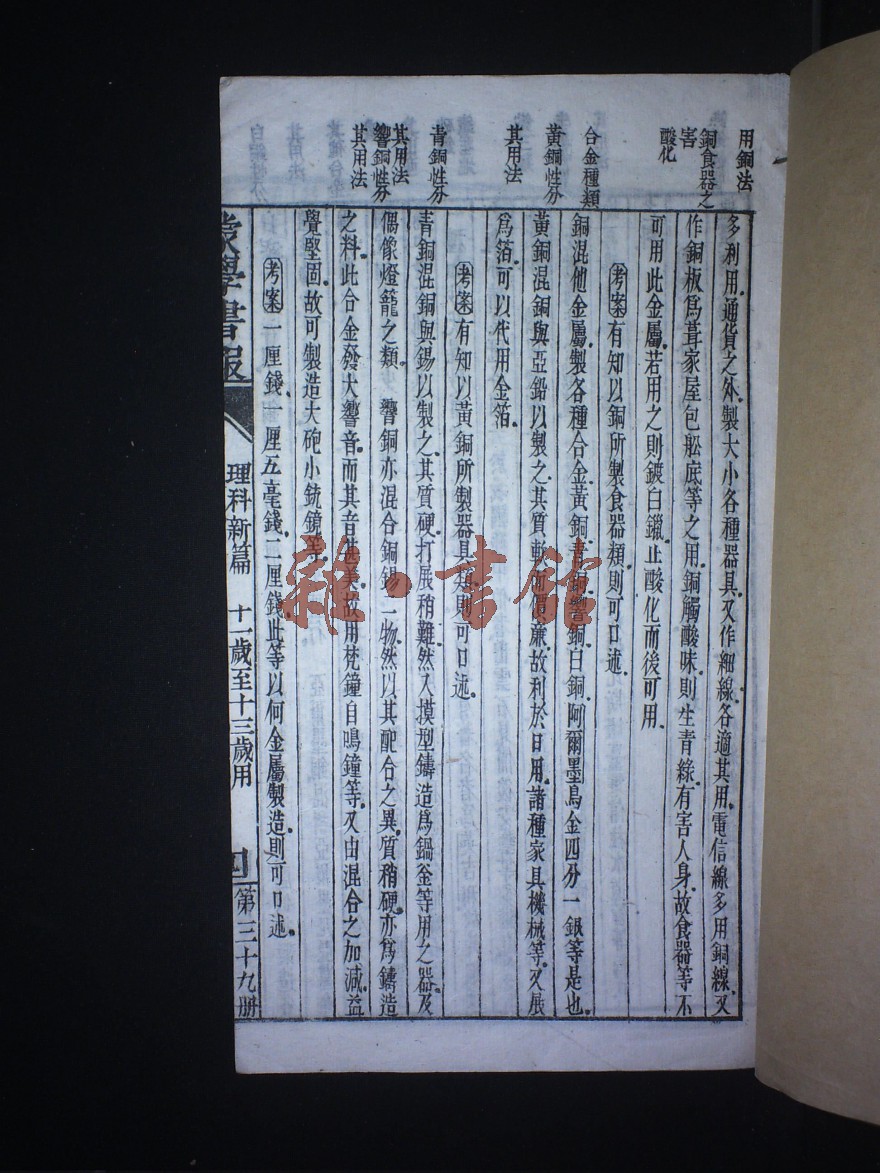 用銅法
銅食器之
害
酸化
合金種類
黃銅性分
其用法
青銅性分
其用法
響銅性分
其用法
多利用通貨之外製大小各種器具又作細線各適其用電信線多用銅線又
作銅板爲葺家屋包舩底等之用銅觸酸味則生青綠有害人身故食器等不
可用此金屬若用之則鍍白鑞止酸化而後可用
考案 有知以銅所製食器類則可口述
銅混他金屬製各種合金黃銅青銅響銅白銅阿爾墨鳥金四分一銀等是也
黃銅混銅與亞鉛以製之其質軟而價廉故利於日用諸種家具機械等又展
爲箔可以代用金箔
考案 有知以黃銅所製器具類則可口述
青銅混銅與錫以製之其質硬打展稍難然入摸型鑄造爲鍋釜等用之器及
偶像燈籠之類 響銅亦混合銅錫二物然以其配合之異質稍硬亦爲鑄造
之料此合金發大響音而其音甚美故用梵鐘自鳴鐘等又由混合之加減益
覺堅固故可製造大砲小銃鏡等
考案 一厘錢一厘五毫錢二厘錢此等以何金屬製造則可口述
蒙學書報
理科新篇 十一歲至十三歲用
第三十九册
雜·書館